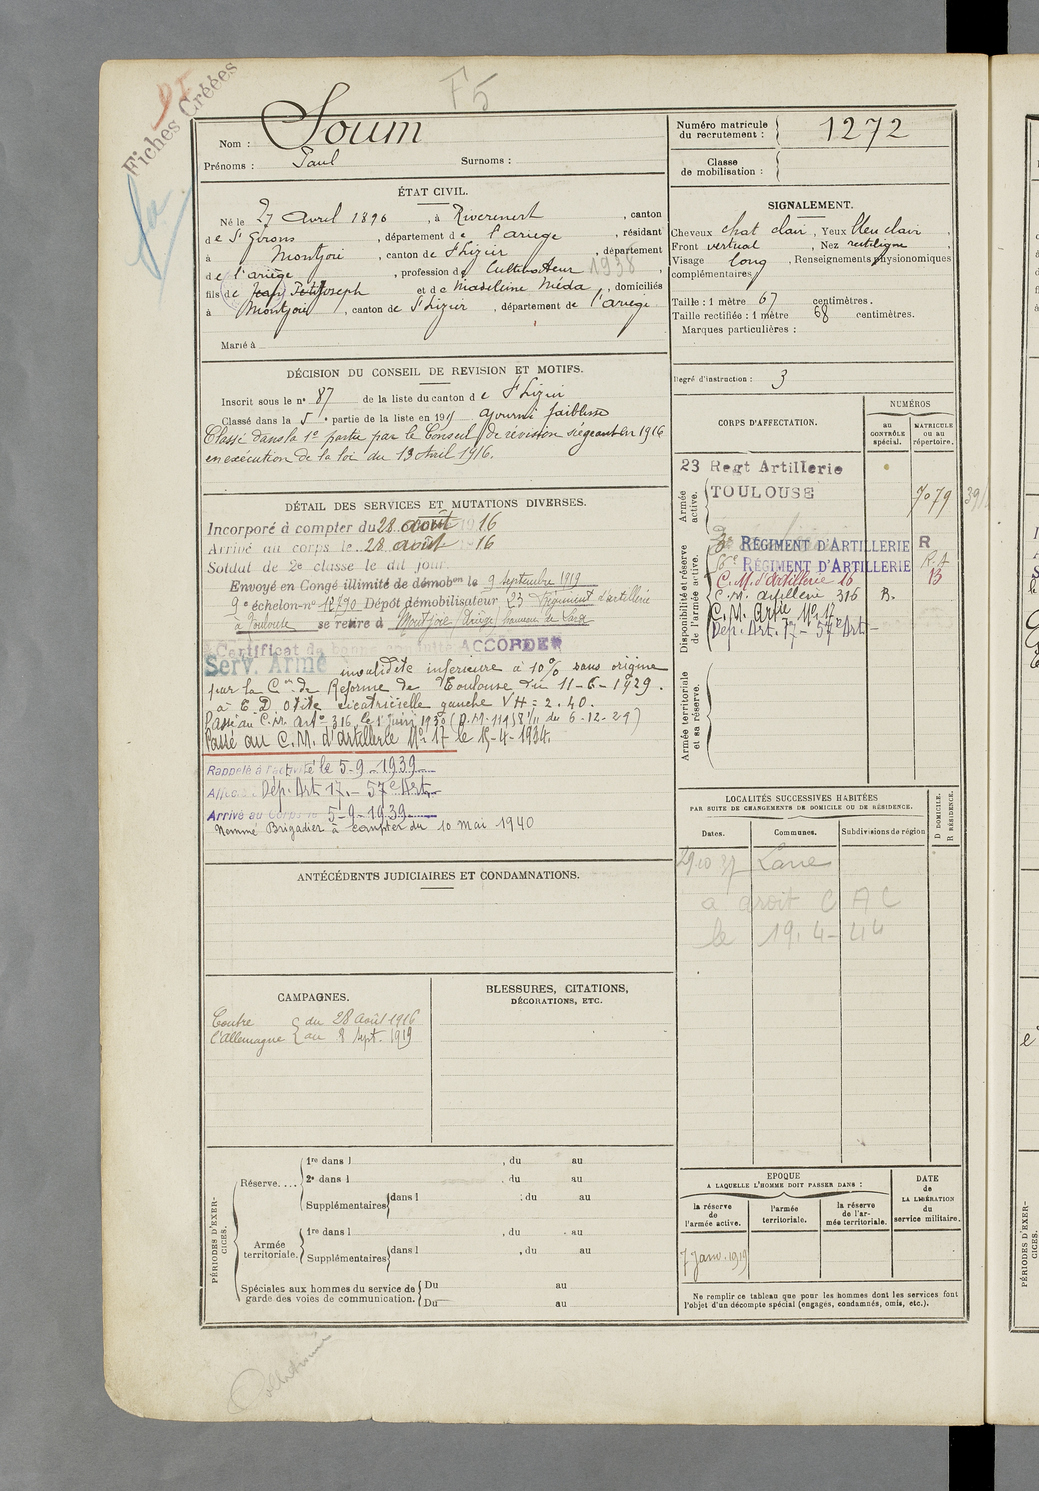 F5
Fiches Créées
Nom : Soum
Prénoms : Paul Surnoms :
Numéro matricule du recrutement : 1272
Classe de mobilisation :
ÉTAT CIVIL.
Né le 27 Avril 1896, à Rivèrenert, canton
de St Girons, département de l'ariège, résidant
à Montjoie, canton de St Lizier, département
de l'ariège, profession de Cultivateur 1938,
fils de Jean Joseph et de Madeleine Méda, domiciliés
à Montjoie, canton de St Lizier, département de l'ariège
Marié à
SIGNALEMENT.
Cheveux chat clair, Yeux bleu clair,
Front vertical, Nez rectiligne,
Visage long, Renseignements physionomiques
complémentaires
Taille : 1 mètre 67 centimètres.
Taille rectifiée : 1 mètre 68 centimètres.
Marques particulières :
Degré d'instruction : 3
DÉCISION DU CONSEIL DE REVISION ET MOTIFS.
Inscrit sous le n° 87 de la liste du canton de St Lizier
Classé dans la 5e partie de la liste en 191 ajourné faiblesse
Classé dans la 1e partie par le Conseil de révision siégeant en 1916
en exécution de la loi du 13 Avril 1916.
DÉTAIL DES SERVICES ET MUTATIONS DIVERSES.
Incorporé à compter du 28 août 1916
Arrivé au corps le 28 août 16
Soldat de 2e classe le dit jour.
Envoyé en Congé illimité de démobon le 9 septembre 1919
9e échelon-n° 12790 Dépôt démobilisateur 23 Régiment d'artillerie
à Toulouse se retire à Montjoie (Ariège)
Certificat de bonne conduite ACCORDÉ
Serv. Armé invalidité inférieure à 10% sans origine
par la Con de Réforme de Toulouse du 11-6-1929.
à E. D. otite cicatricielle gauche VH = 2.40.
Passé au C.M. arte 316, le 1 Juin 1930 (D.M. du 6-12-29)
Passé au C.M. d'artillerie N° 17 le 15-4-1934.
Rappelé à l'activité le 5-9-1939
Affecté : Dép. Art. 17.- 57e Art.
Arrivé au Corps le 5-9-1939
Nommé Brigadier à compter du 10 mai 1940
ANTÉCÉDENTS JUDICIAIRES ET CONDAMNATIONS.
CAMPAGNES.
Contre l'Allemagne
du 28 Août 1916
au 8 Sept. 1919
BLESSURES, CITATIONS,
DÉCORATIONS, ETC.
CORPS D'AFFECTATION.
NUMÉROS
au CONTRÔLE spécial.
MATRICULE ou au répertoire.
Armée active.
23 Regt Artillerie
TOULOUSE 7079
Disponibilité et réserve de l'armée active.
RÉGIMENT D'ARTILLERIE R
RÉGIMENT D'ARTILLERIE R.A
C.M. d'artillerie 16 13
C.M. artillerie 316 B.
C.M. Artie N° 17
Dép. Art. 17 - 57e Art -
Armée territoriale et sa réserve.
LOCALITÉS SUCCESSIVES HABITÉES
PAR SUITE DE CHANGEMENTS DE DOMICILE OU DE RÉSIDENCE.
Dates. Communes. Subdivisions de région
D DOMICILE.
R RÉSIDENCE.
a droit C A C
le 19.4-44
PÉRIODES D'EXERCICES.
Réserve....
1re dans l , du au
2e dans l , du au
Supplémentaires dans l , du au
Armée territoriale.
1re dans l , du au
Supplémentaires dans l , du au
Spéciales aux hommes du service de garde des voies de communication.
Du au
Du au
EPOQUE
A LAQUELLE L'HOMME DOIT PASSER DANS :
la réserve de l'armée active.
l'armée territoriale.
la réserve de l'armée territoriale.
DATE de LA LIBÉRATION du service militaire.
7 Janv. 1919
Ne remplir ce tableau que pour les hommes dont les services font
l'objet d'un décompte spécial (engagés, condamnés, omis, etc.).